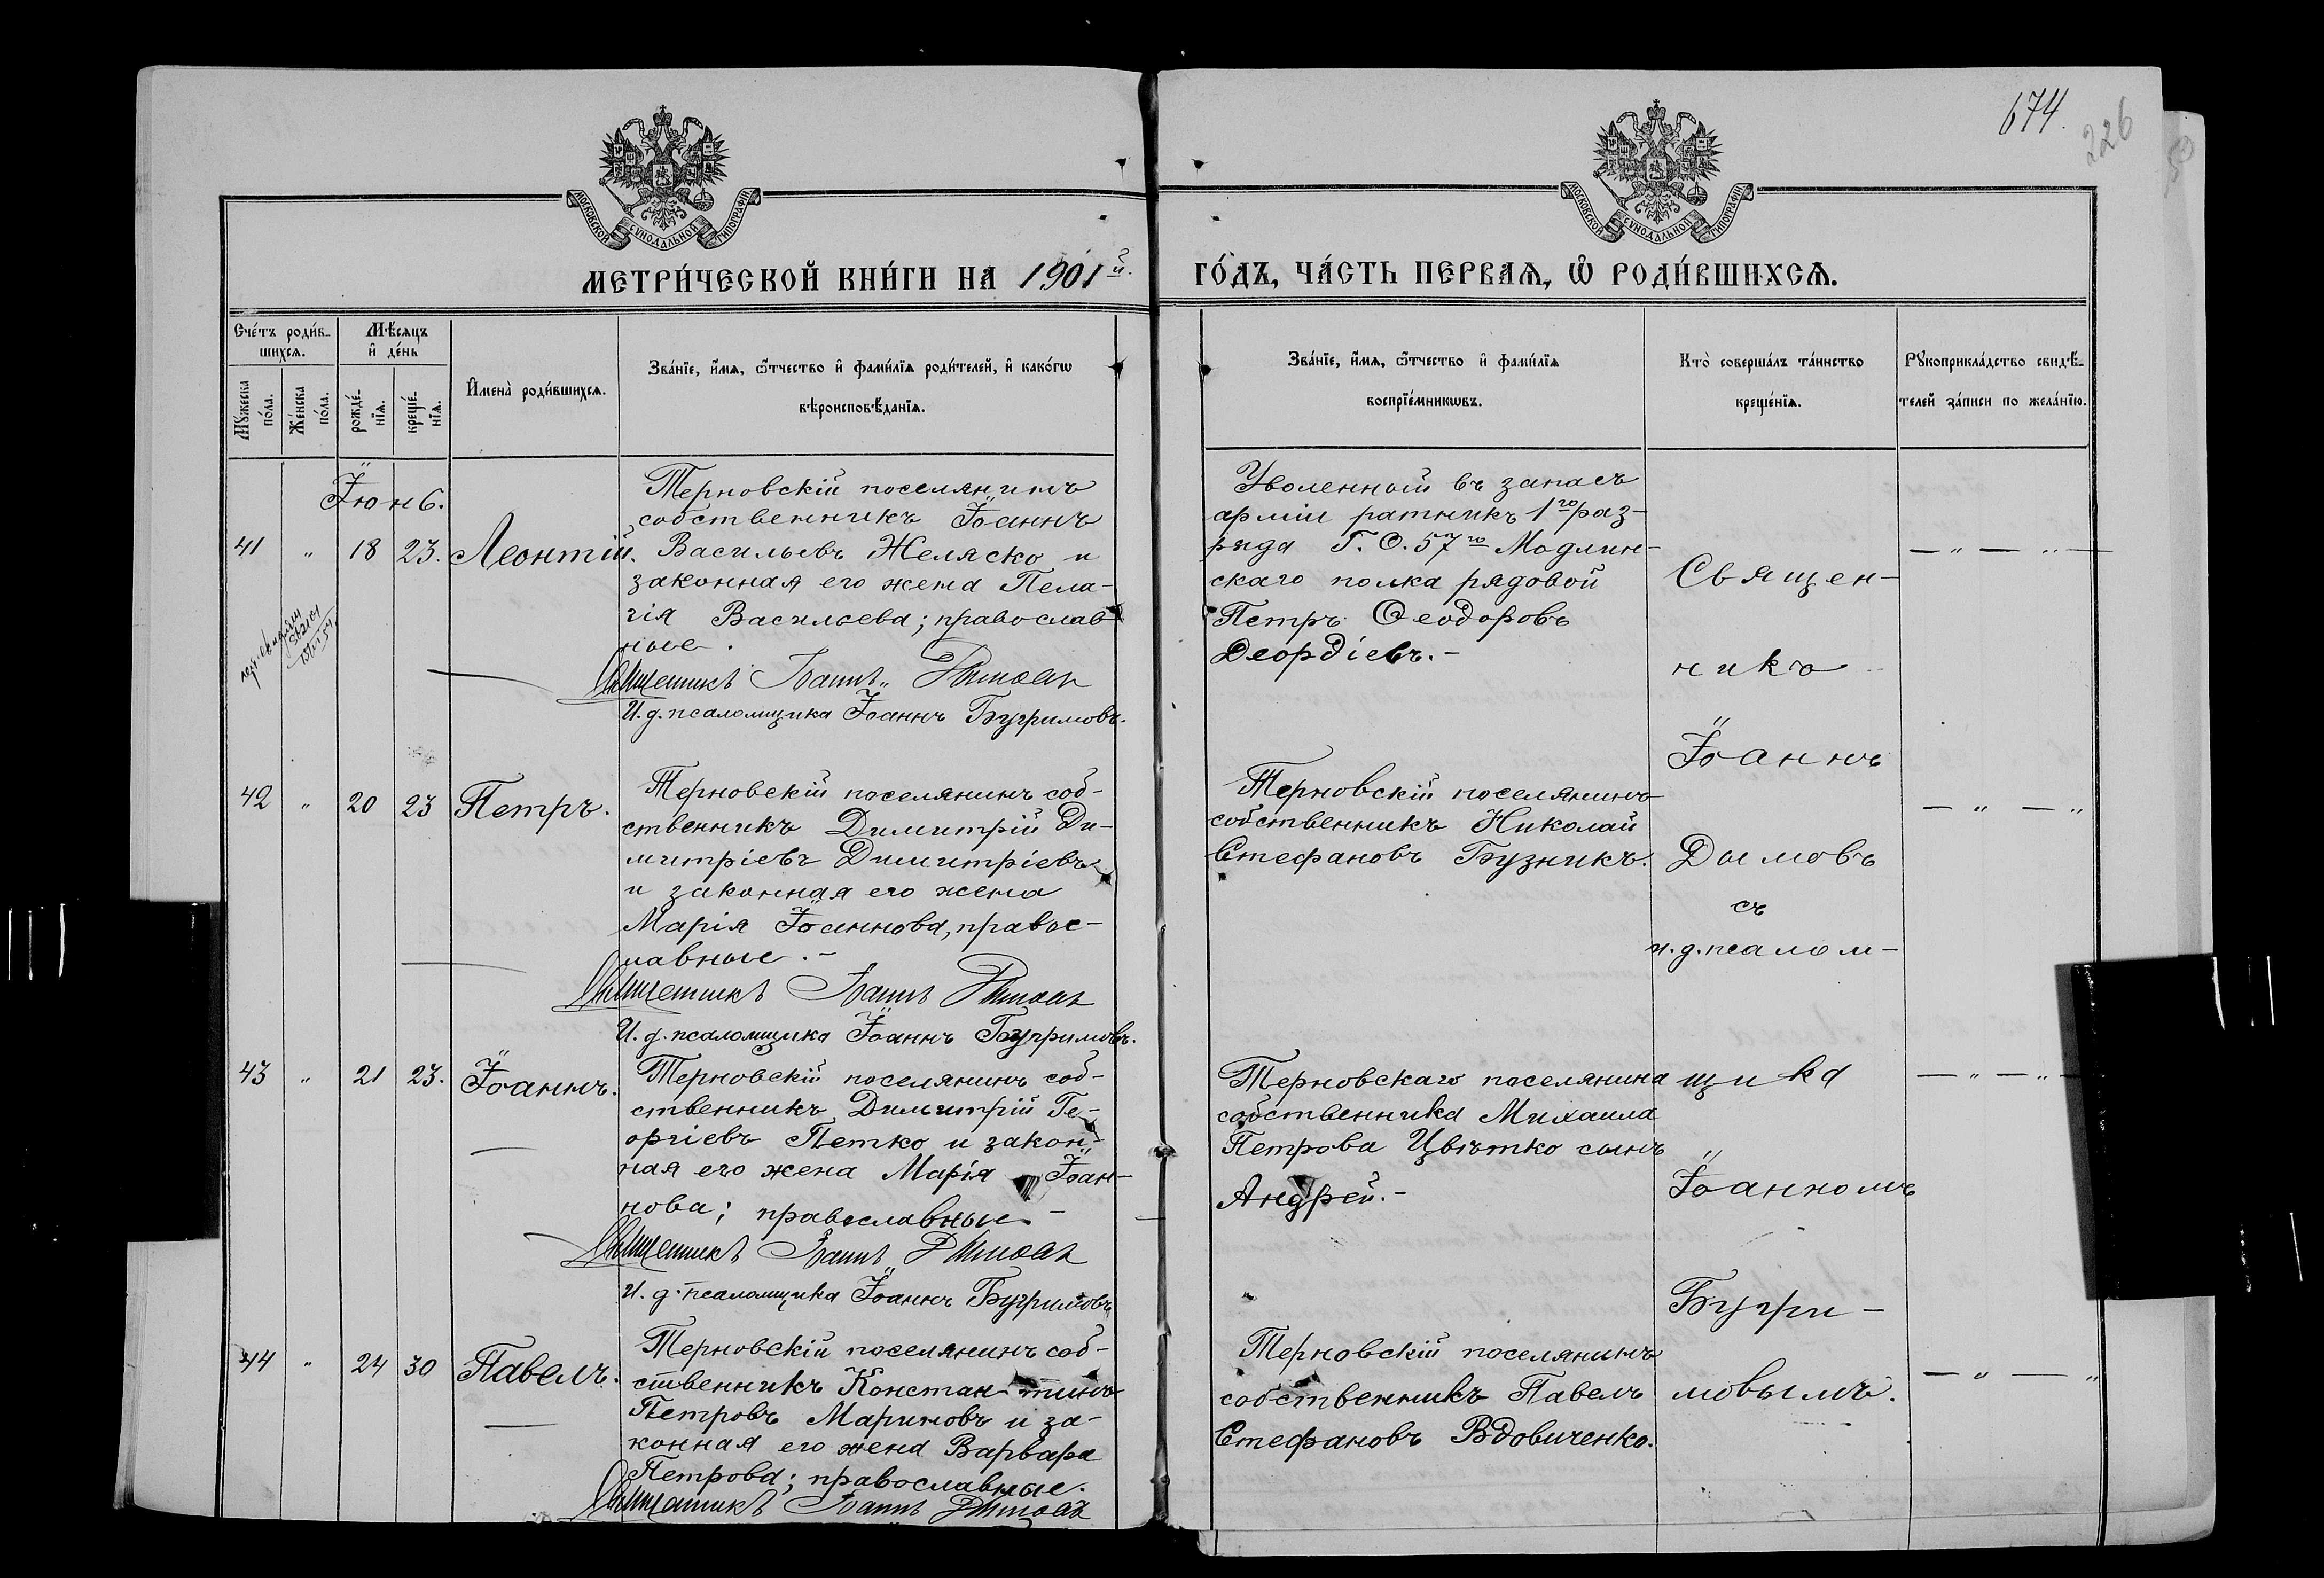 674.
226
МОСКОВСКОЙ СѴНОДАЛЬНОЙ ТИПОГРАФІИ
МОСКОВСКОЙ СѴНОДАЛЬНОЙ ТИПОГРАФІИ
МЕТРИ́ЧЕСКОЙ КНИ́ГИ НА 1901й.
ГО́ДЪ, ЧА́СТЬ ПЕРВАѦ, Ѡ РОДИ́ВШИХСѦ.
Сче́тъ роди́в-
шихсѧ.
Мѣ́сяцъ
и҆ де́нь
Мꙋ́жеска
по́ла.
Же́нска
по́ла.
рожде́-
нїѧ.
креще́-
нїѧ.
И҆мена̀ роди́вшихсѧ.
Зва́нїе, и҆́мѧ, ѻ҆́тчество и҆ фами́лїѧ роди́телей, и҆ како́гѡ
вѣроисповѣ́данїѧ.
Зва́нїе, и҆́мѧ, ѻ҆́тчество и҆ фами́лїѧ
воспрїе́мникѡвъ.
Кто̀ соверша́лъ та́инство
креще́нїѧ.
Рꙋкоприкла́дство свидѣ́-
телей за́писи по жела́нїю.
Іюнь.
41 " 18 23. Леонтій.
Терновскій поселянинъ
собственникъ Іоаннъ
Васильевъ Желяско и
законная его жена Пела-
гія Васильева; православ
ные.
Священникъ Іоаннъ Дымовъ
И. д. псаломщика Іоаннъ Бугримовъ.
Уволенный въ запасъ
арміи ратникъ 1го раз-
ряда Г. О. 57го Модлин-
скаго полка рядовой
Петръ Ѳеодоровъ
Деордіевъ.-
— " — " —
42 " 20 23 Петръ.
Терновскій поселянинъ соб-
ственникъ Димитрій Ди-
митріевъ Димитріевъ
и законная его жена
Марія Іоаннова, правос-
лавные.-
Священникъ Іоаннъ Дымовъ
И. д. псаломщика Іоаннъ Бугримовъ.
Терновскій поселянинъ
собственникъ Николай
Стефановъ Бузникъ.
— " — "
43 " 21 23. Іоаннъ.
Терновскій поселянинъ соб-
ственникъ Димитрій Ге-
оргіевъ Петко и закон-
ная его жена Марія Іоан-
нова; православные.-
Священникъ Іоаннъ Дымовъ
И. д. псаломщика Іоаннъ Бугримовъ
Терновскаго поселянина
собственника Михаила
Петрова Цвѣтко сынъ
Андрей.-
— " — " —
44 " 24 30 Павелъ.
Терновскій поселянинъ соб-
ственникъ Константинъ
Петровъ Мариновъ и за-
конная его жена Варвара
Петрова; православные.
Священникъ Іоаннъ Дымовъ
Терновскій поселянинъ
собственникъ Павелъ
Стефановъ Вдовиченко.
— " — "
Священ-
никъ
Іоаннъ
Дымовъ
съ
и. д. псалом-
щика
Іоанномъ
Бугри-
мовымъ.